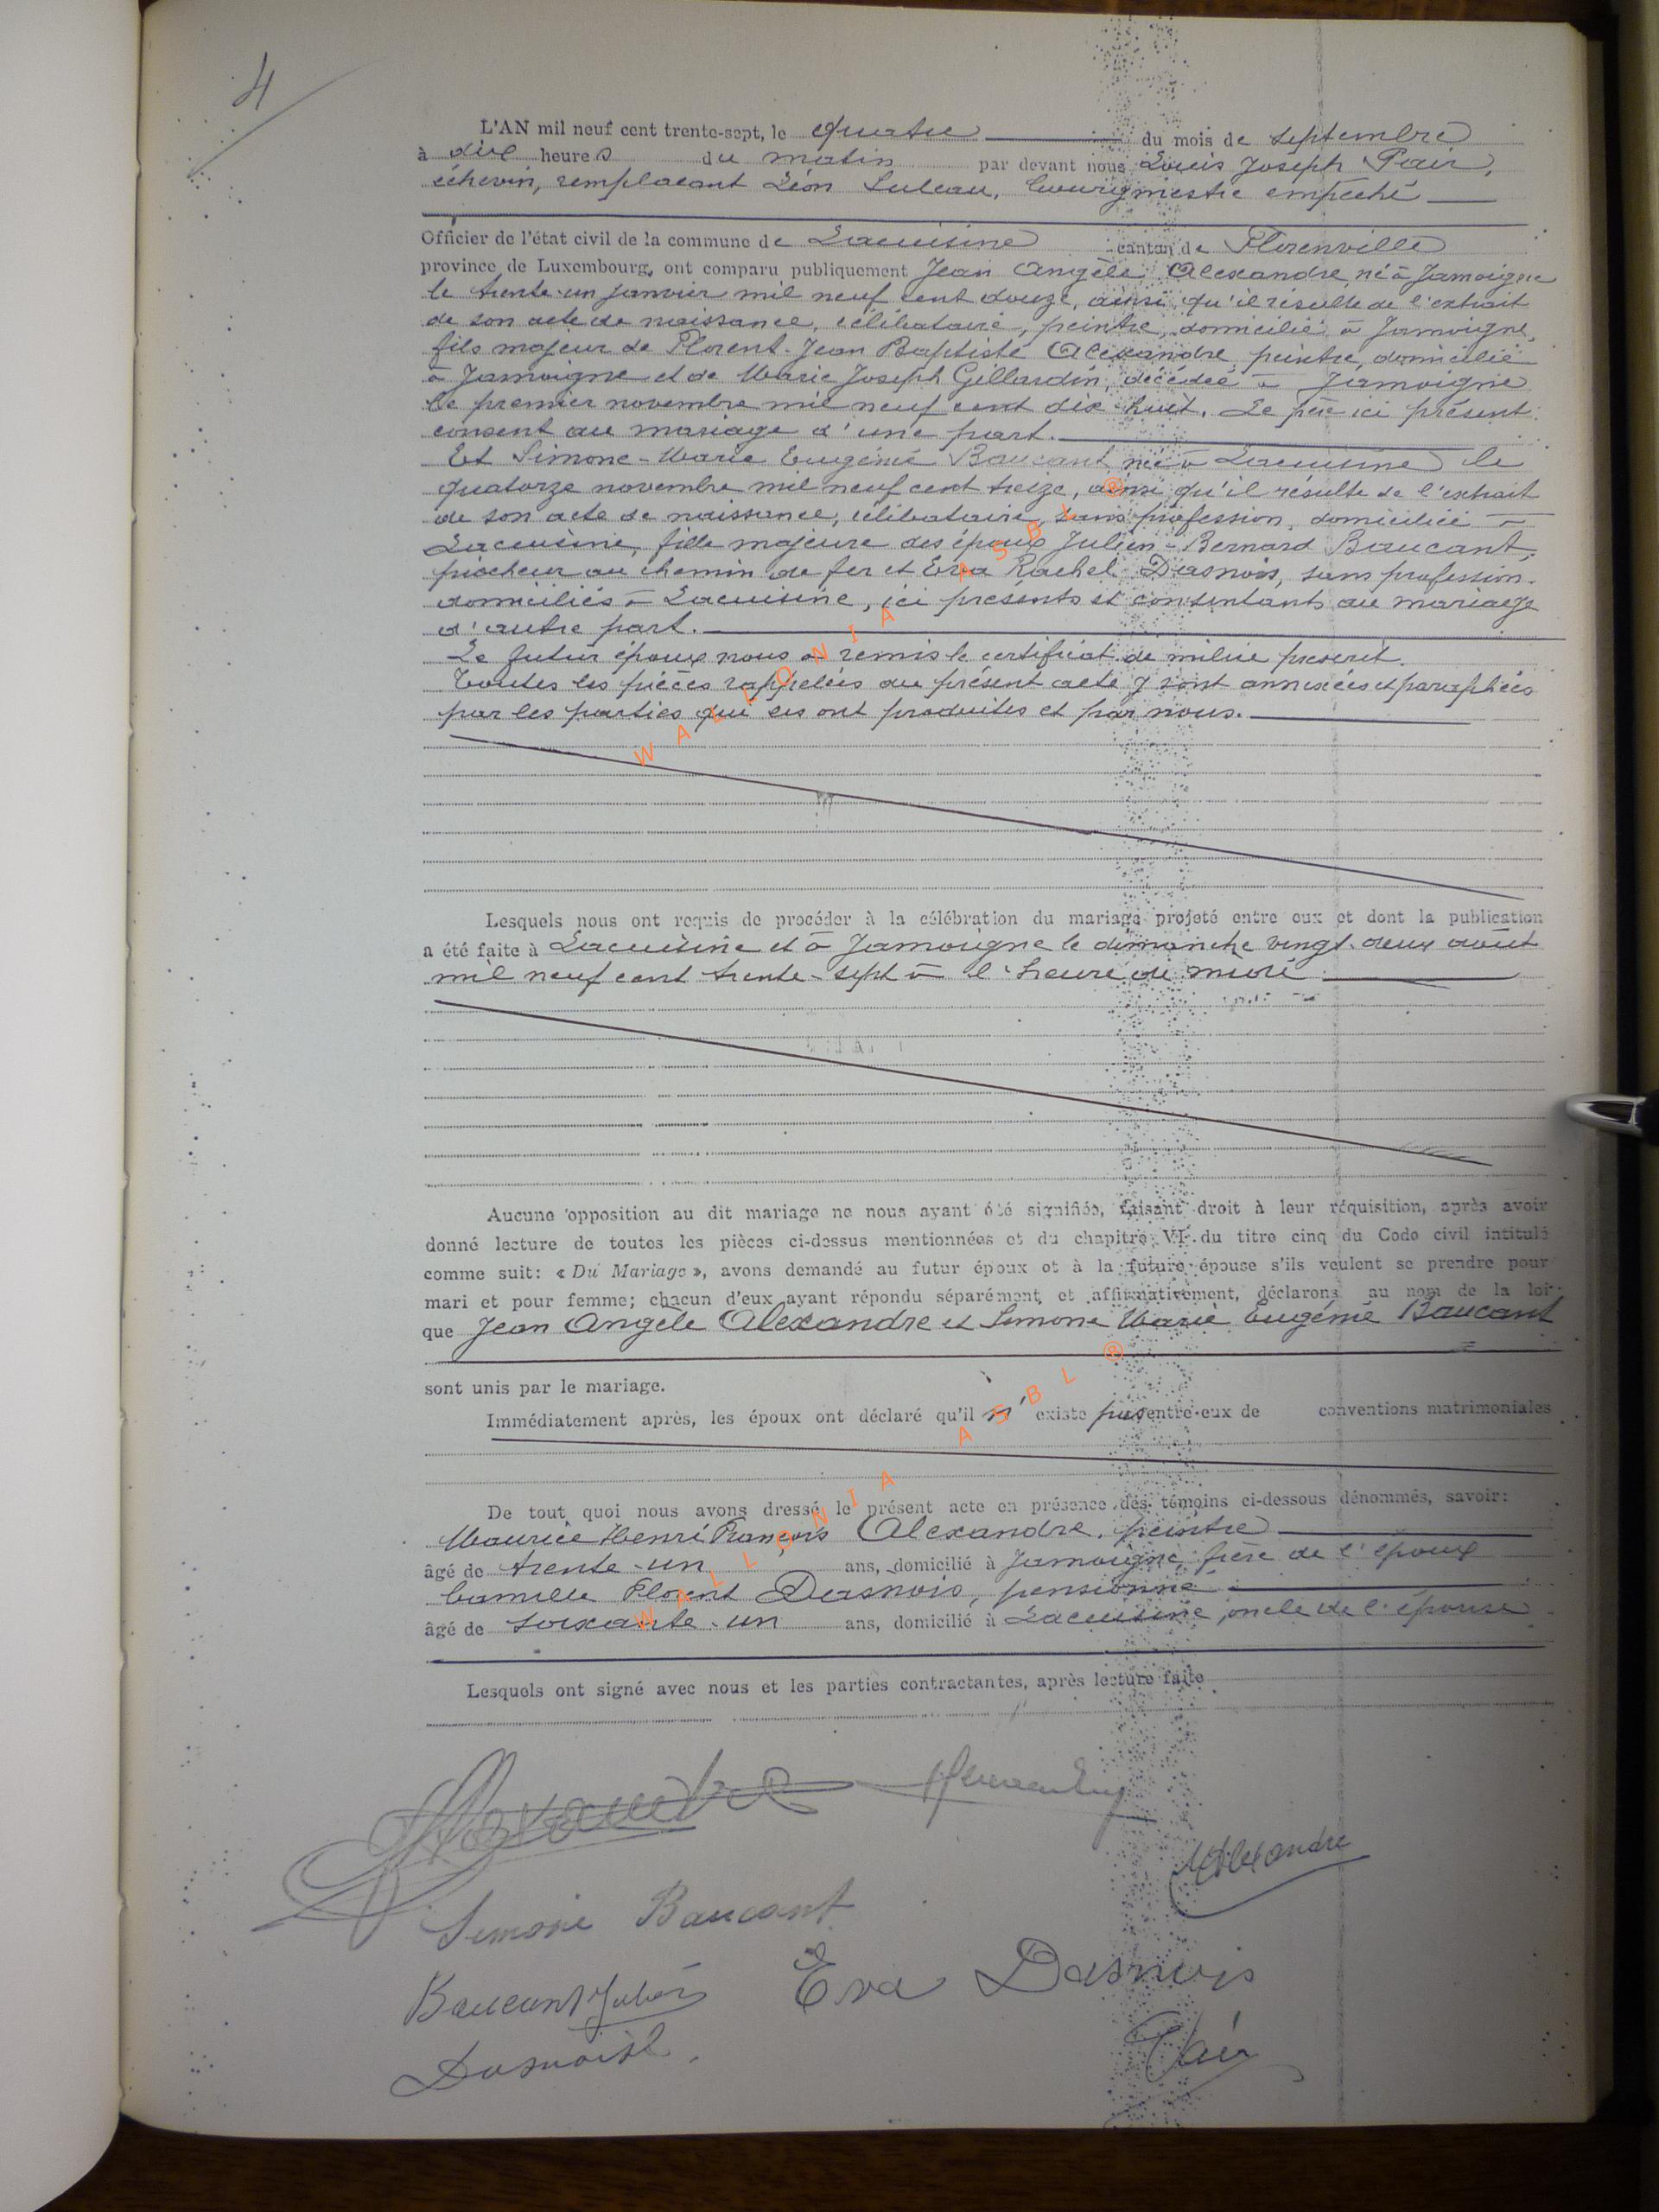 4
L'AN mil neuf cent trente-sept, le quatre du mois de septembre
à dix heures du matin par devant nous Louis Joseph Pair,
échevin, remplaçant Léon Luleau, bourgmestre empêché
Officier de l'état civil de la commune de Lacuisine canton de Florenville
province de Luxembourg, ont comparu publiquement Jean Angèle Alexandre, né à Jamoigne
le trente-un janvier mil neuf cent douze, ainsi qu'il résulte de l'extrait
de son acte de naissance, célibataire, peintre, domicilié à Jamoigne,
fils majeur de Florent-Jean Baptiste Alexandre, peintre, domicilié
à Jamoigne et de Marie Joseph Gillardin, décédée à Jamoigne
le premier novembre mil neuf cent dix-huit. Le père ici présent
consent au mariage d'une part.
Et Simone-Marie Eugénie Baucant née à Lacuisine le
quatorze novembre mil neuf cent treize, ainsi qu'il résulte de l'extrait
de son acte de naissance, célibataire, sans profession, domiciliée à
Lacuisine, fille majeure des époux Julien-Bernard Baucant,
piocheur au chemin de fer et Eva Rachel Dasnois, sans profession.
domiciliés à Lacuisine, ici présents et consentants au mariage
d'autre part.
Le futur époux nous a remis le certificat de milice prescrit.
Toutes les pièces rappelées au présent acte y sont annexées et paraphées
par les parties qui les ont produites et par nous.
Lesquels nous ont requis de procéder à la célébration du mariage projeté entre eux et dont la publication
a été faite à Lacuisine et à Jamoigne le dimanche vingt-deux août
mil neuf cent trente-sept à l'heure de midi
Aucune opposition au dit mariage ne nous ayant été signifiée, faisant droit à leur réquisition, après avoir
donné lecture de toutes les pièces ci-dessus mentionnées et du chapitre VI du titre cinq du Code civil intitulé
comme suit: « Du Mariage », avons demandé au futur époux et à la future épouse s'ils veulent se prendre pour
mari et pour femme; chacun d'eux ayant répondu séparément et affirmativement, déclarons au nom de la loi
que Jean Angèle Alexandre et Simone Marie Eugénie Baucant
sont unis par le mariage.
Immédiatement après, les époux ont déclaré qu'il n'existe pas entre eux de conventions matrimoniales
De tout quoi nous avons dressé le présent acte en présence des témoins ci-dessous dénommés, savoir:
Maurice Henri François Alexandre, peintre
âgé de trente-un ans, domicilié à Jamoigne, frère de l'époux
Camille Florent Dasnois, pensionné
âgé de soixante-un ans, domicilié à Lacuisine, oncle de l'épouse
Lesquels ont signé avec nous et les parties contractantes, après lecture faite
Alexandre
MAlexandre
Simone Baucant
Baucant Julien Eva Dasnois
Pair
WALLONIA ASBL ®
WALLONIA ASBL ®